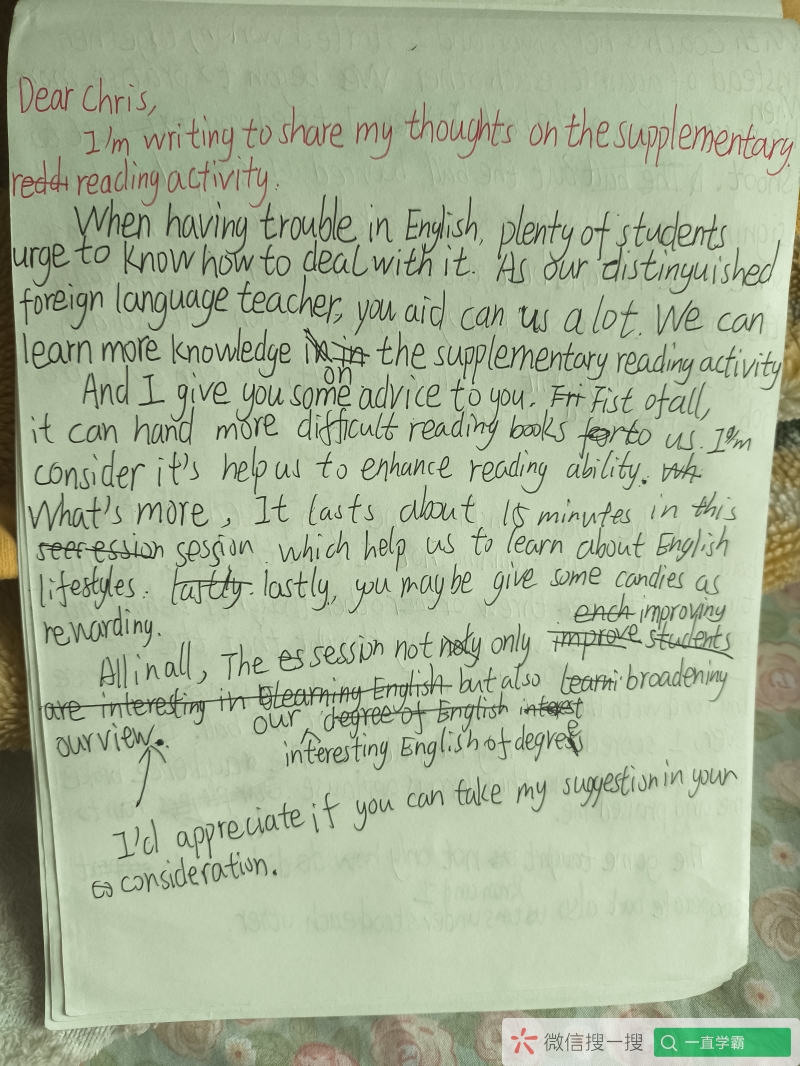 Dear Chris,
I'm writing to share my thoughts on the supplementary
reading activity.
When having trouble in English, plenty of students
urge to know how to deal with it. As our distinguished
foreign language teacher, you aid can us a lot. We can
learn more knowledge the supplementary reading activity
on
And I give you some advice to you. Fist of all,
it can hand more difficult reading books to us. I'm
consider it's help us to enhance reading ability.
What's more, It lasts about 15 minutes in this
session which help us to learn about English
lifestyles. lastly, you maybe give some candies as
improving
rewarding.
All in all, The session not only
but also broadening
our
our view.
interesting English of degrees
I'd appreciate if you can take my suggestion in your
consideration.
微信搜一搜
一直学霸